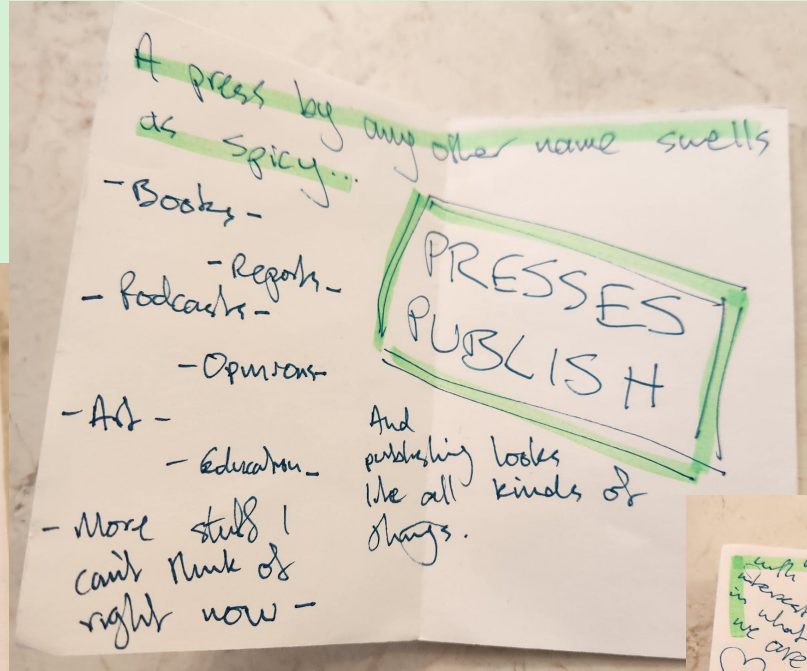 A press by any other name smells
as spicy...
- Books -
- Reports -
- Podcasts -
- Opinions -
- Art -
- Education -
- More stuff I
can't think of
right now -
PRESSES
PUBLISH
And
publishing looks
like all kinds of
things.
in what
we are